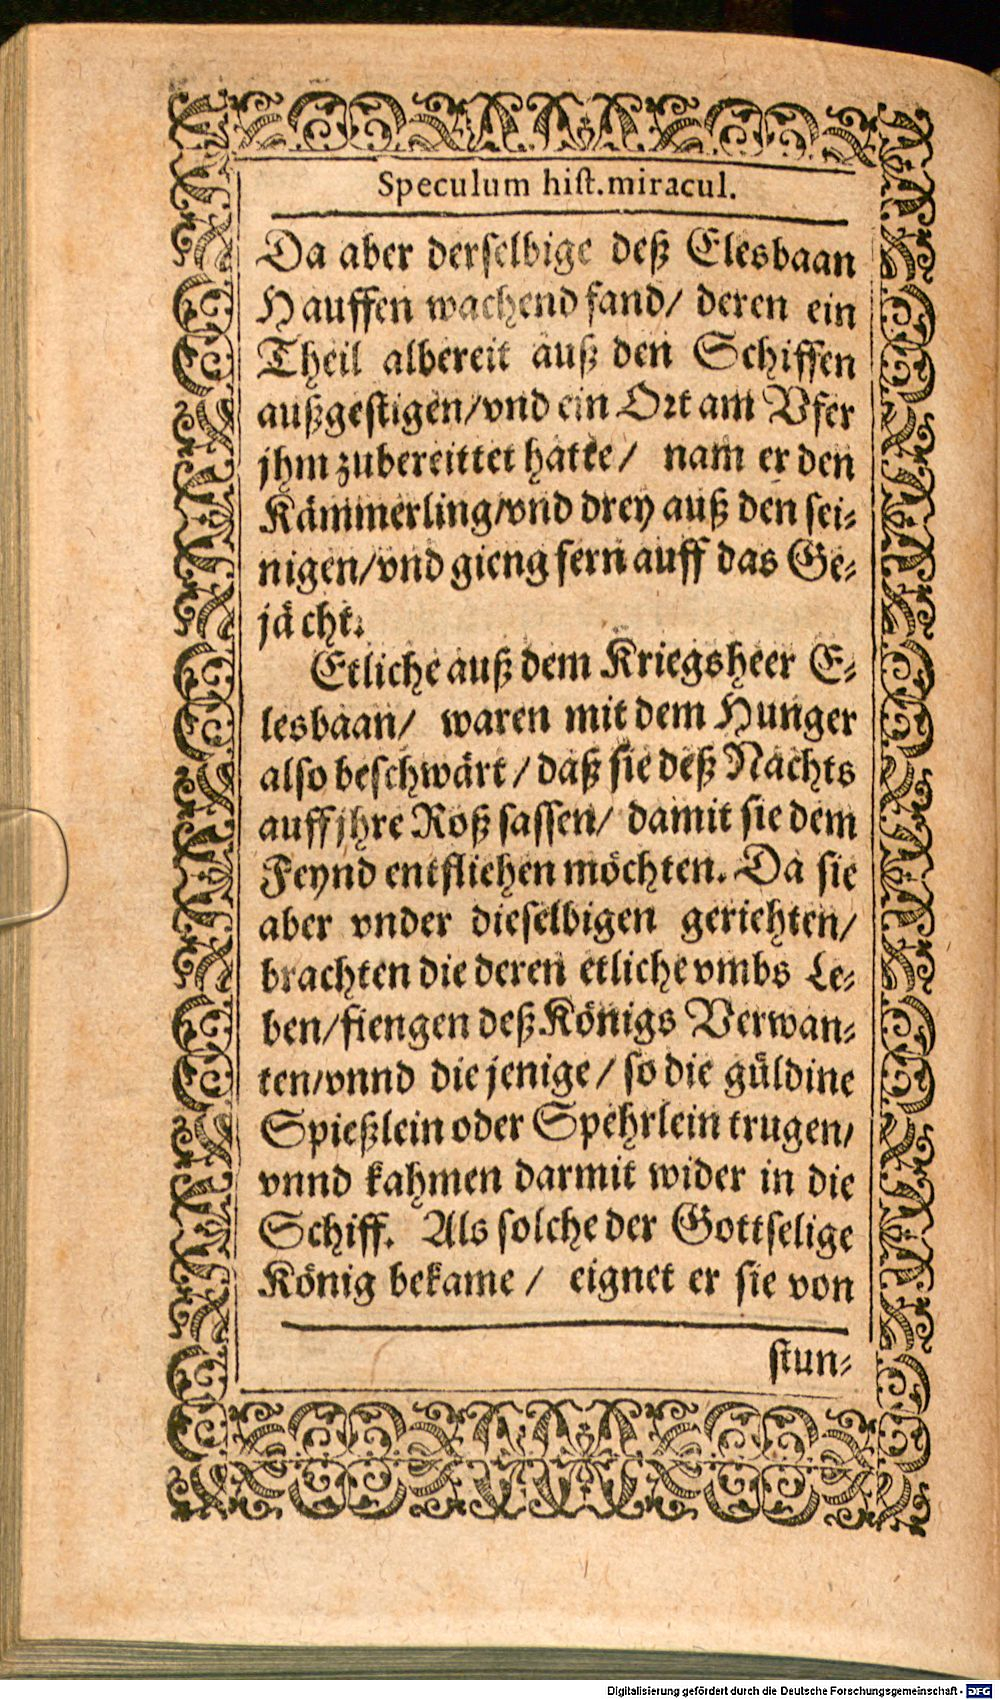 Speculum hist.miracul.
Da aber derselbige deß Elesbaan
Hauffen wachend fand/ deren ein
Theil albereit auß den Schiffen
außgestigen/vnd ein Ort am Vfer
jhm zubereittet hatte/ nam er den
Kämmerling/vnd drey auß den sei-
nigen/vnd gieng fern auff das Ge-
jächt.
Etliche auß dem Kriegsheer E-
lesbaan/ waren mit dem Hunger
also beschwärt/daß sie deß Nachts
auff jhre Roß sassen/ damit sie dem
Feynd entfliehen möchten. Da sie
aber vnder dieselbigen geriehten/
brachten die deren etliche vmbs Le-
ben/fiengen deß Königs Verwan-
ten/vnnd die jenige/so die güldine
Spießlein oder Spehrlein trugen/
vnnd kahmen darmit wider in die
Schiff. Als solche der Gottselige
König bekame/ eignet er sie von
stun-
Digitalisierung gefördert durch die Deutsche Forschungsgemeinschaft - DFG